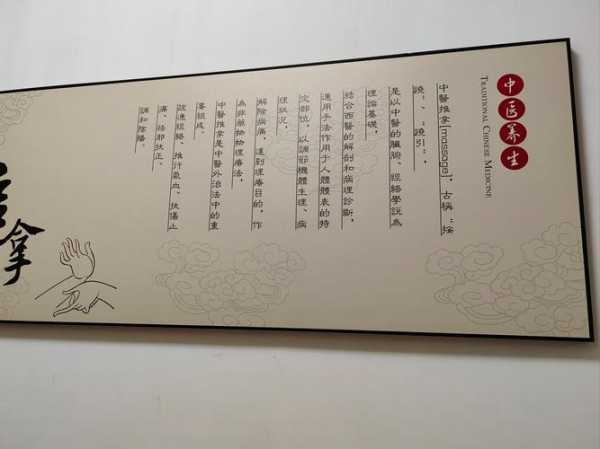 中医养生
TRADITIONAL CHINESE MEDICINE
中醫推拿[massage]，古稱"按
蹺"、"蹺引"，
是以中醫的臟腑、經絡學説為
理論基礎，
結合西醫的解剖和病理診斷，
運用手法作用于人體體表的特
定部位，以調節機體生理、病
理狀况，
解除病痛，達到理療目的，作
為非藥物物理療法，
中醫推拿是中醫外治法中的重
要組成。
疏通經絡、推行氣血、扶傷止
痛、祛邪扶正、
調和陰陽。
拿